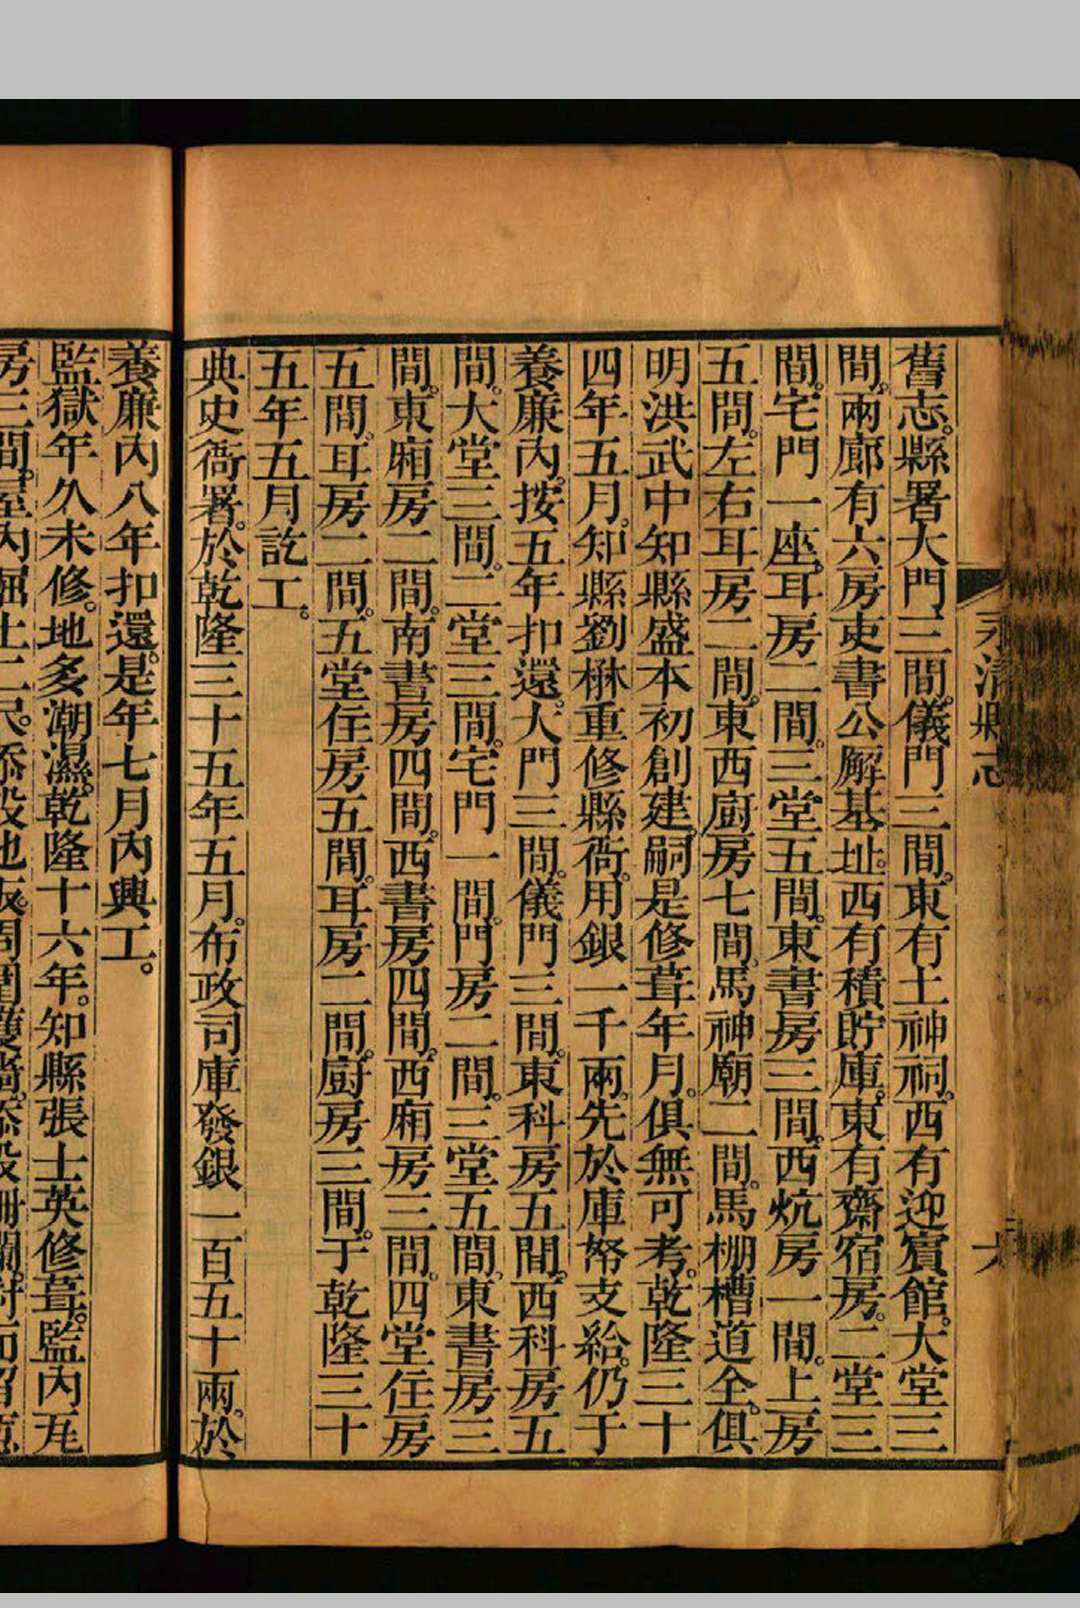 永清縣志
六
舊志。縣署大門三間。儀門三間。東有土神祠。西有迎賓館。大堂三
間。兩廊有六房吏書公廨基址。西有積貯庫。東有齋宿房。二堂三
間。宅門一座。耳房二間。三堂五間。東書房三間。西炕房一間。上房
五間。左右耳房二間。東西厨房七間。馬神廟二間。馬棚槽道全。俱
明洪武中知縣盛本初創建。嗣是修葺年月。俱無可考。乾隆三十
四年五月。知縣劉楙重修縣衙。用銀一千兩。先於庫帑支給。仍于
養廉內。按五年扣還。大門三間。儀門三間。東科房五間。西科房五
間。大堂三間。二堂三間。宅門一間。門房二間。三堂五間。東書房三
間。東廂房二間。南書房四間。西書房四間。西廂房三間。四堂住房
五間。耳房二間。五堂住房五間。耳房二間。厨房三間。于乾隆三十
五年五月訖工。
典史衙署。於乾隆三十五年五月。布政司庫發銀一百五十兩。於
養廉內八年扣還。是年七月內興工。
監獄年久未修。地多潮濕。乾隆十六年。知縣張士英修葺。監內瓦
房三間。屋內掘土二尺。添設地板。周圍護墻。添設柵欄。